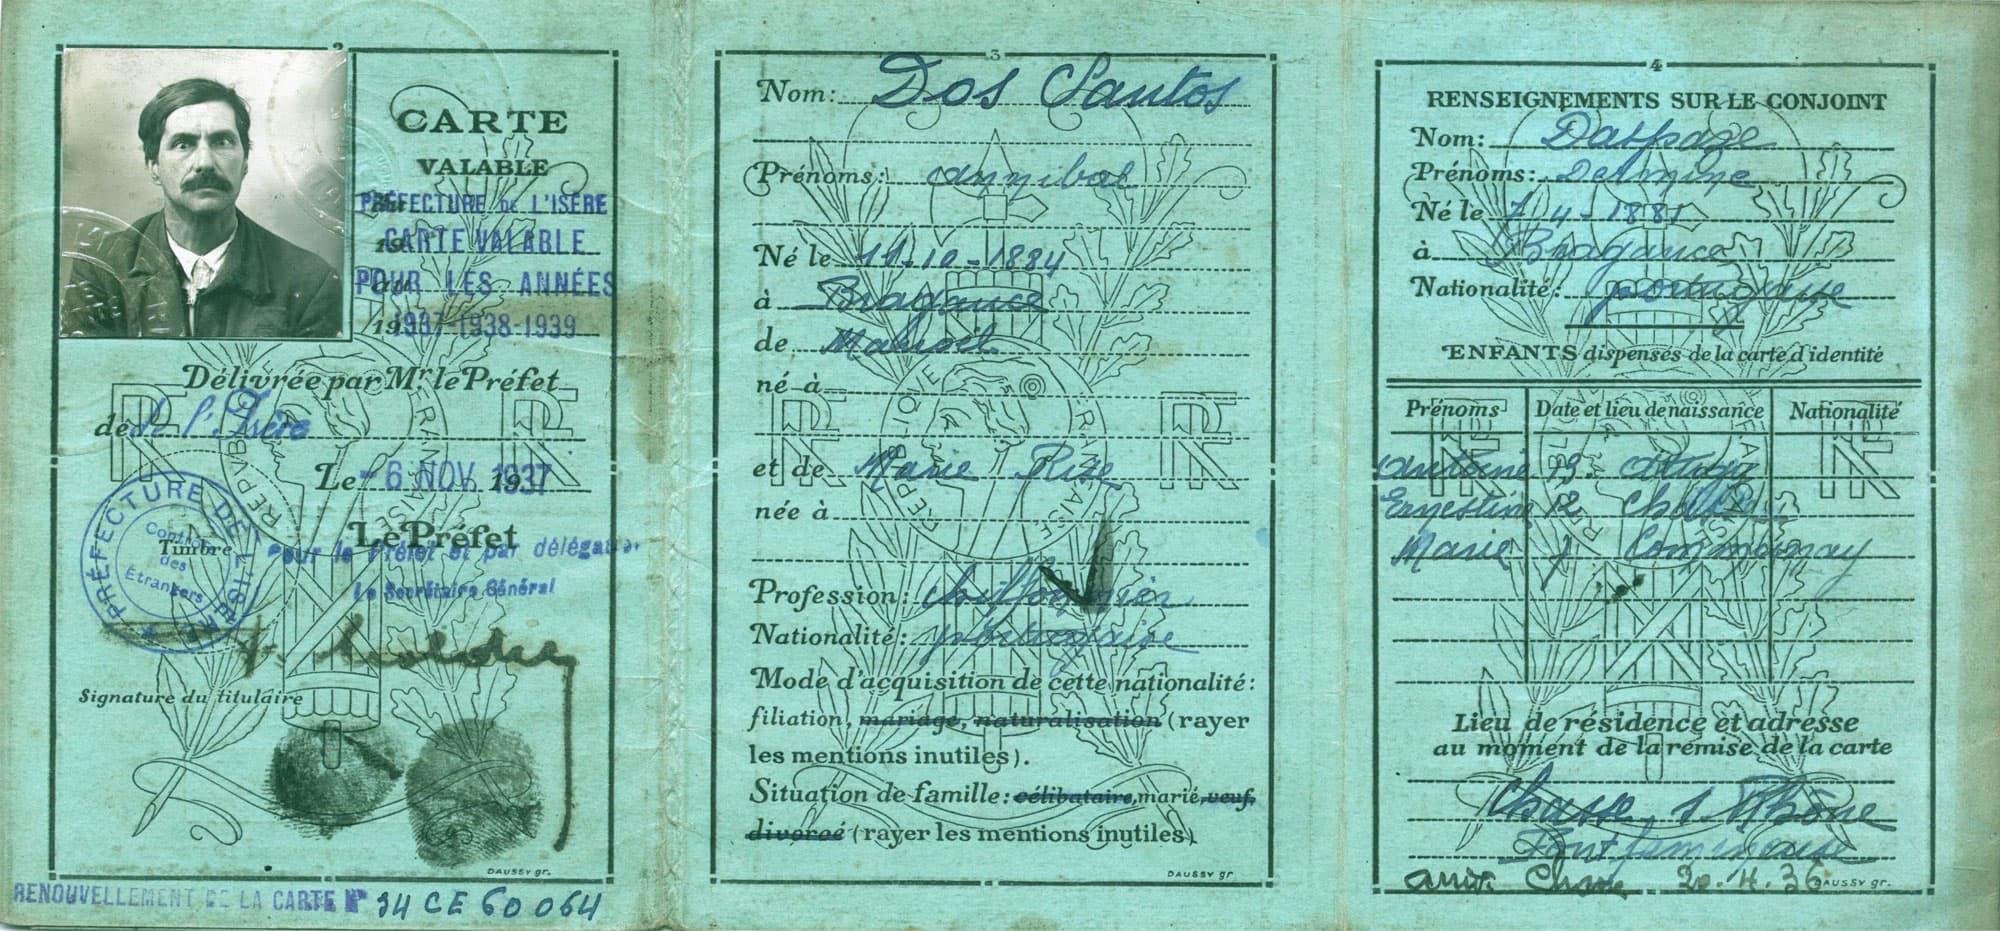 2
CARTE
VALABLE
PRÉFECTURE DE L'ISÈRE
CARTE VALABLE
POUR LES ANNÉES
1937-1938-1939
Délivrée par Mr. le Préfet
de de l'Isère
Le -6 NOV. 1937
Le Préfet
Pour le Préfet et par délégation
Le Secrétaire Général
PRÉFECTURE DE L'ISÈRE
Contrôle des Étrangers
Timbre
Signature du titulaire
RÉPUBLIQUE FRANÇAISE
RF RF
DAUSSY gr.
RENOUVELLEMENT DE LA CARTE N° 34 CE 60064
3
Nom: Dos Santos
Prénoms: Annibal
Né le 11-10-1884
à Bragance
de
né à
et de Marie Rise
née à
Profession: chiffonnier
Nationalité: portugaise
Mode d'acquisition de cette nationalité:
filiation, mariage, naturalisation (rayer
les mentions inutiles).
Situation de famille: célibataire, marié, veuf,
divorcé (rayer les mentions inutiles)
RÉPUBLIQUE FRANÇAISE
RF RF
DAUSSY gr.
4
RENSEIGNEMENTS SUR LE CONJOINT
Nom:
Prénoms:
Né le 7-4-1881
à Bragance
Nationalité: portugaise
ENFANTS dispensés de la carte d'identité
Prénoms Date et lieu de naissance Nationalité
Antoine
Ernestine 12
Marie 7 Communay
Lieu de résidence et adresse
au moment de la remise de la carte
Chasse s. Rhône
Chasse 20.4.36
RF RF
DAUSSY gr.